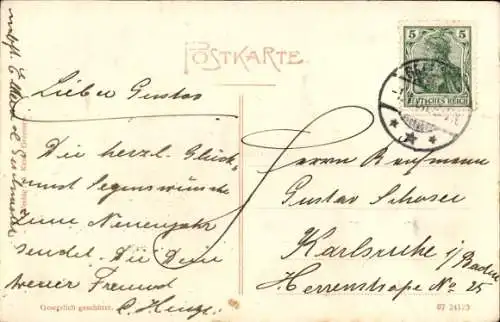 POSTKARTE
5 5
DEUTSCHES REICH
Lieber Gustav
Die herzl. Glück-
und Segenswünsche
zum Neuenjahr
sendet Dir Dein
treuer Freund
C. Hinze.
Herrn Kaufmann
Gustav Schoser
Karlsruhe i/Baden
Herrenstraße No 25
Gesetzlich geschützt.
07 24123